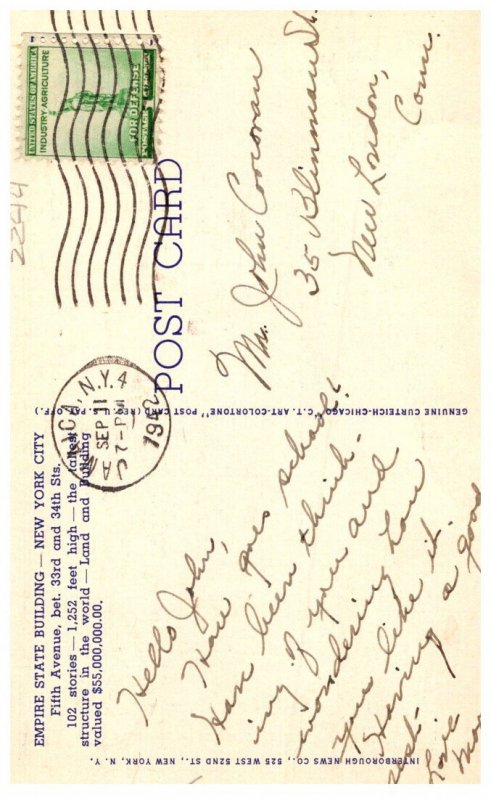 EMPIRE STATE BUILDING — NEW YORK CITY
Fifth Avenue, bet. 33rd and 34th Sts.
102 stories — 1,252 feet high — the tallest
structure in the world — Land and Building
valued $55,000,000.00.
Hello John,
How goes school?
Have been think-
ing of you and
wondering how
you like it.
Having a good
rest.
Love
INTERBOROUGH NEWS CO., 525 WEST 52ND ST., NEW YORK, N. Y.
GENUINE CURTEICH-CHICAGO "C. T. ART-COLORTONE" POST CARD (REG. U. S. PAT. OFF.)
POST CARD
JAMAICA, N.Y. 4
SEP 11
7-PM
1942
UNITED STATES OF AMERICA
INDUSTRY AGRICULTURE
FOR DEFENSE
POSTAGE
Mr. John Corcoran
35 Blinman St.
New London,
Conn.